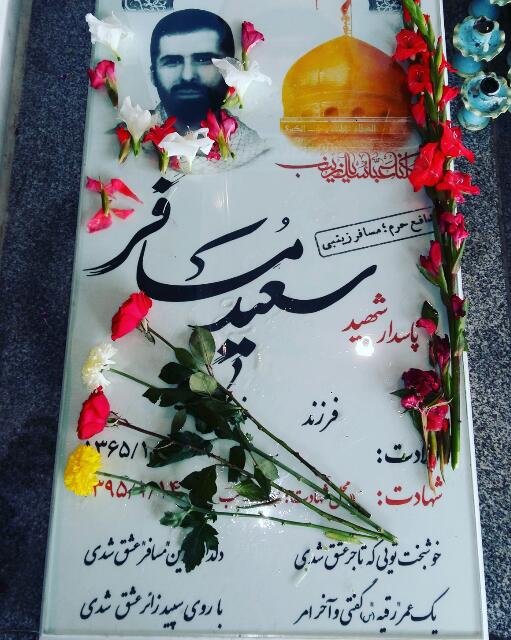 کلنا عباسک یا زینب
مدافع حرم؛ مسافر زینبی
سعید مسافر
پاسدار شهید
فرزند
ولادت: ۱۳۶۵/۱
شهادت: ۱۳۹۵/۱/۱۴ محل شهادت:
خوشبخت تویی که تاجر عشق شدی
مسافر عشق شدی
یک عمر رقیه (س) گفتی و آخر امر
با روی سپید زائر عشق شدی